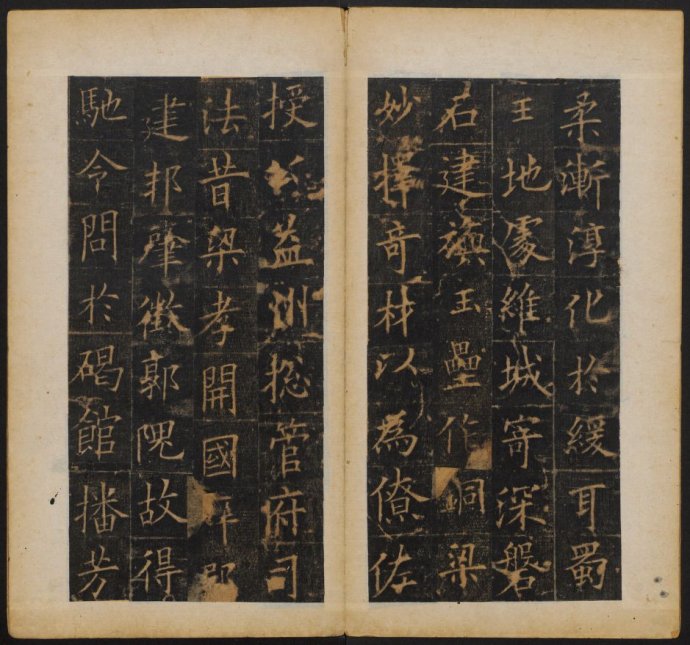 柔漸淳化於緩耳蜀
王地處維城寄深磐
石建旟玉壘作銅梁
妙擇奇材以為僚佐
授公益州捴管府司
法昔梁孝開國
建邦肇徵郭隗故得
馳令問於碣館播芳